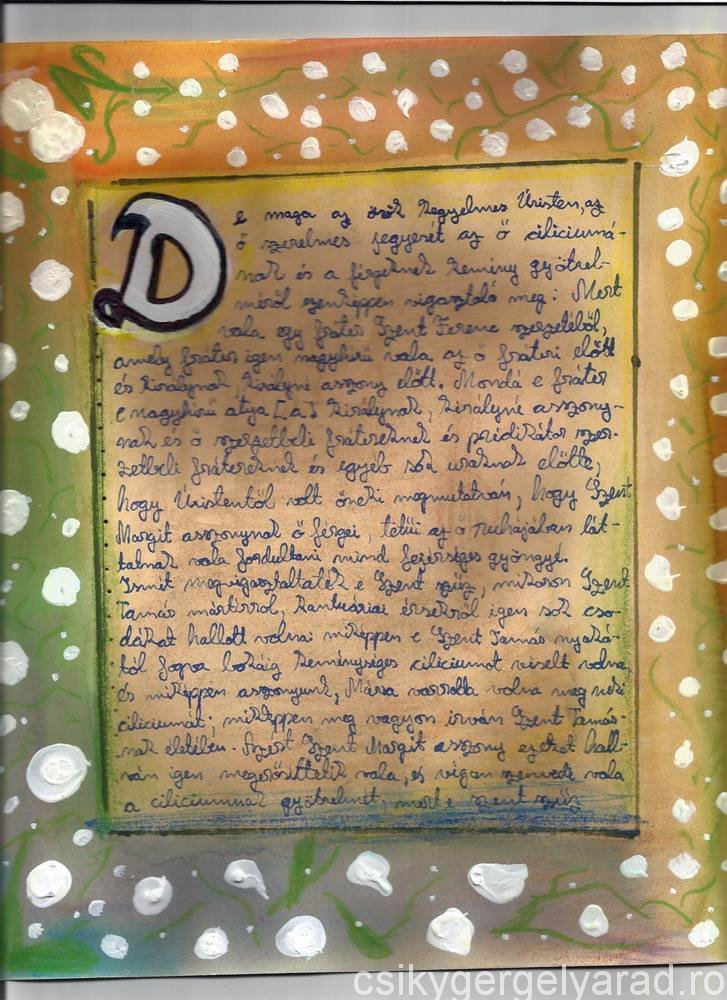 De maga az örök kegyelmes Úristen, az
ő szerelmes jegyesét az ő ciliciumá-
nak és a férgeknek kemény gyötrel-
méről ezenképpen vigasztalá meg: Mert
vala egy fráter Szent Ferenc szerzetéből,
amely fráter igen nagyhírű vala az ő fráteri előtt
és királynak, királyné asszony előtt. Mondá e fráter
e nagyhírű atya [a] királynak, királyné asszony-
nak és ő szerzetbeli frátereknek és prédikátor szer-
zetbeli frátereknek és egyéb sok uraknak előtte,
hogy Úristentől volt őneki megmutatván, hogy Szent
Margit asszonynak ő férgei, tetűi az ő ruhájában lát-
tatnak vala fordultani mind fejérséges gyöngyé.
Ismét megvigasztaltaték e Szent szűz, mikoron Szent
Tamás mártírról, Kantuáriai érsekről igen sok cso-
dákat hallott volna: miképpen e Szent Tamás nyaká-
tól fogva bokáig keménységes ciliciumot viselt volna,
és miképpen asszonyunk, Mária varrotta volna meg neki
ciliciumát; miképpen meg vagyon írván Szent Tamás-
nak életében. Azért Szent Margit asszony ezeket hall-
ván igen megerősíttetik vala, és vígan szenvedi vala
a ciliciumnak gyötrelmét, mert e szent szűz
csikygergelyarad.ro